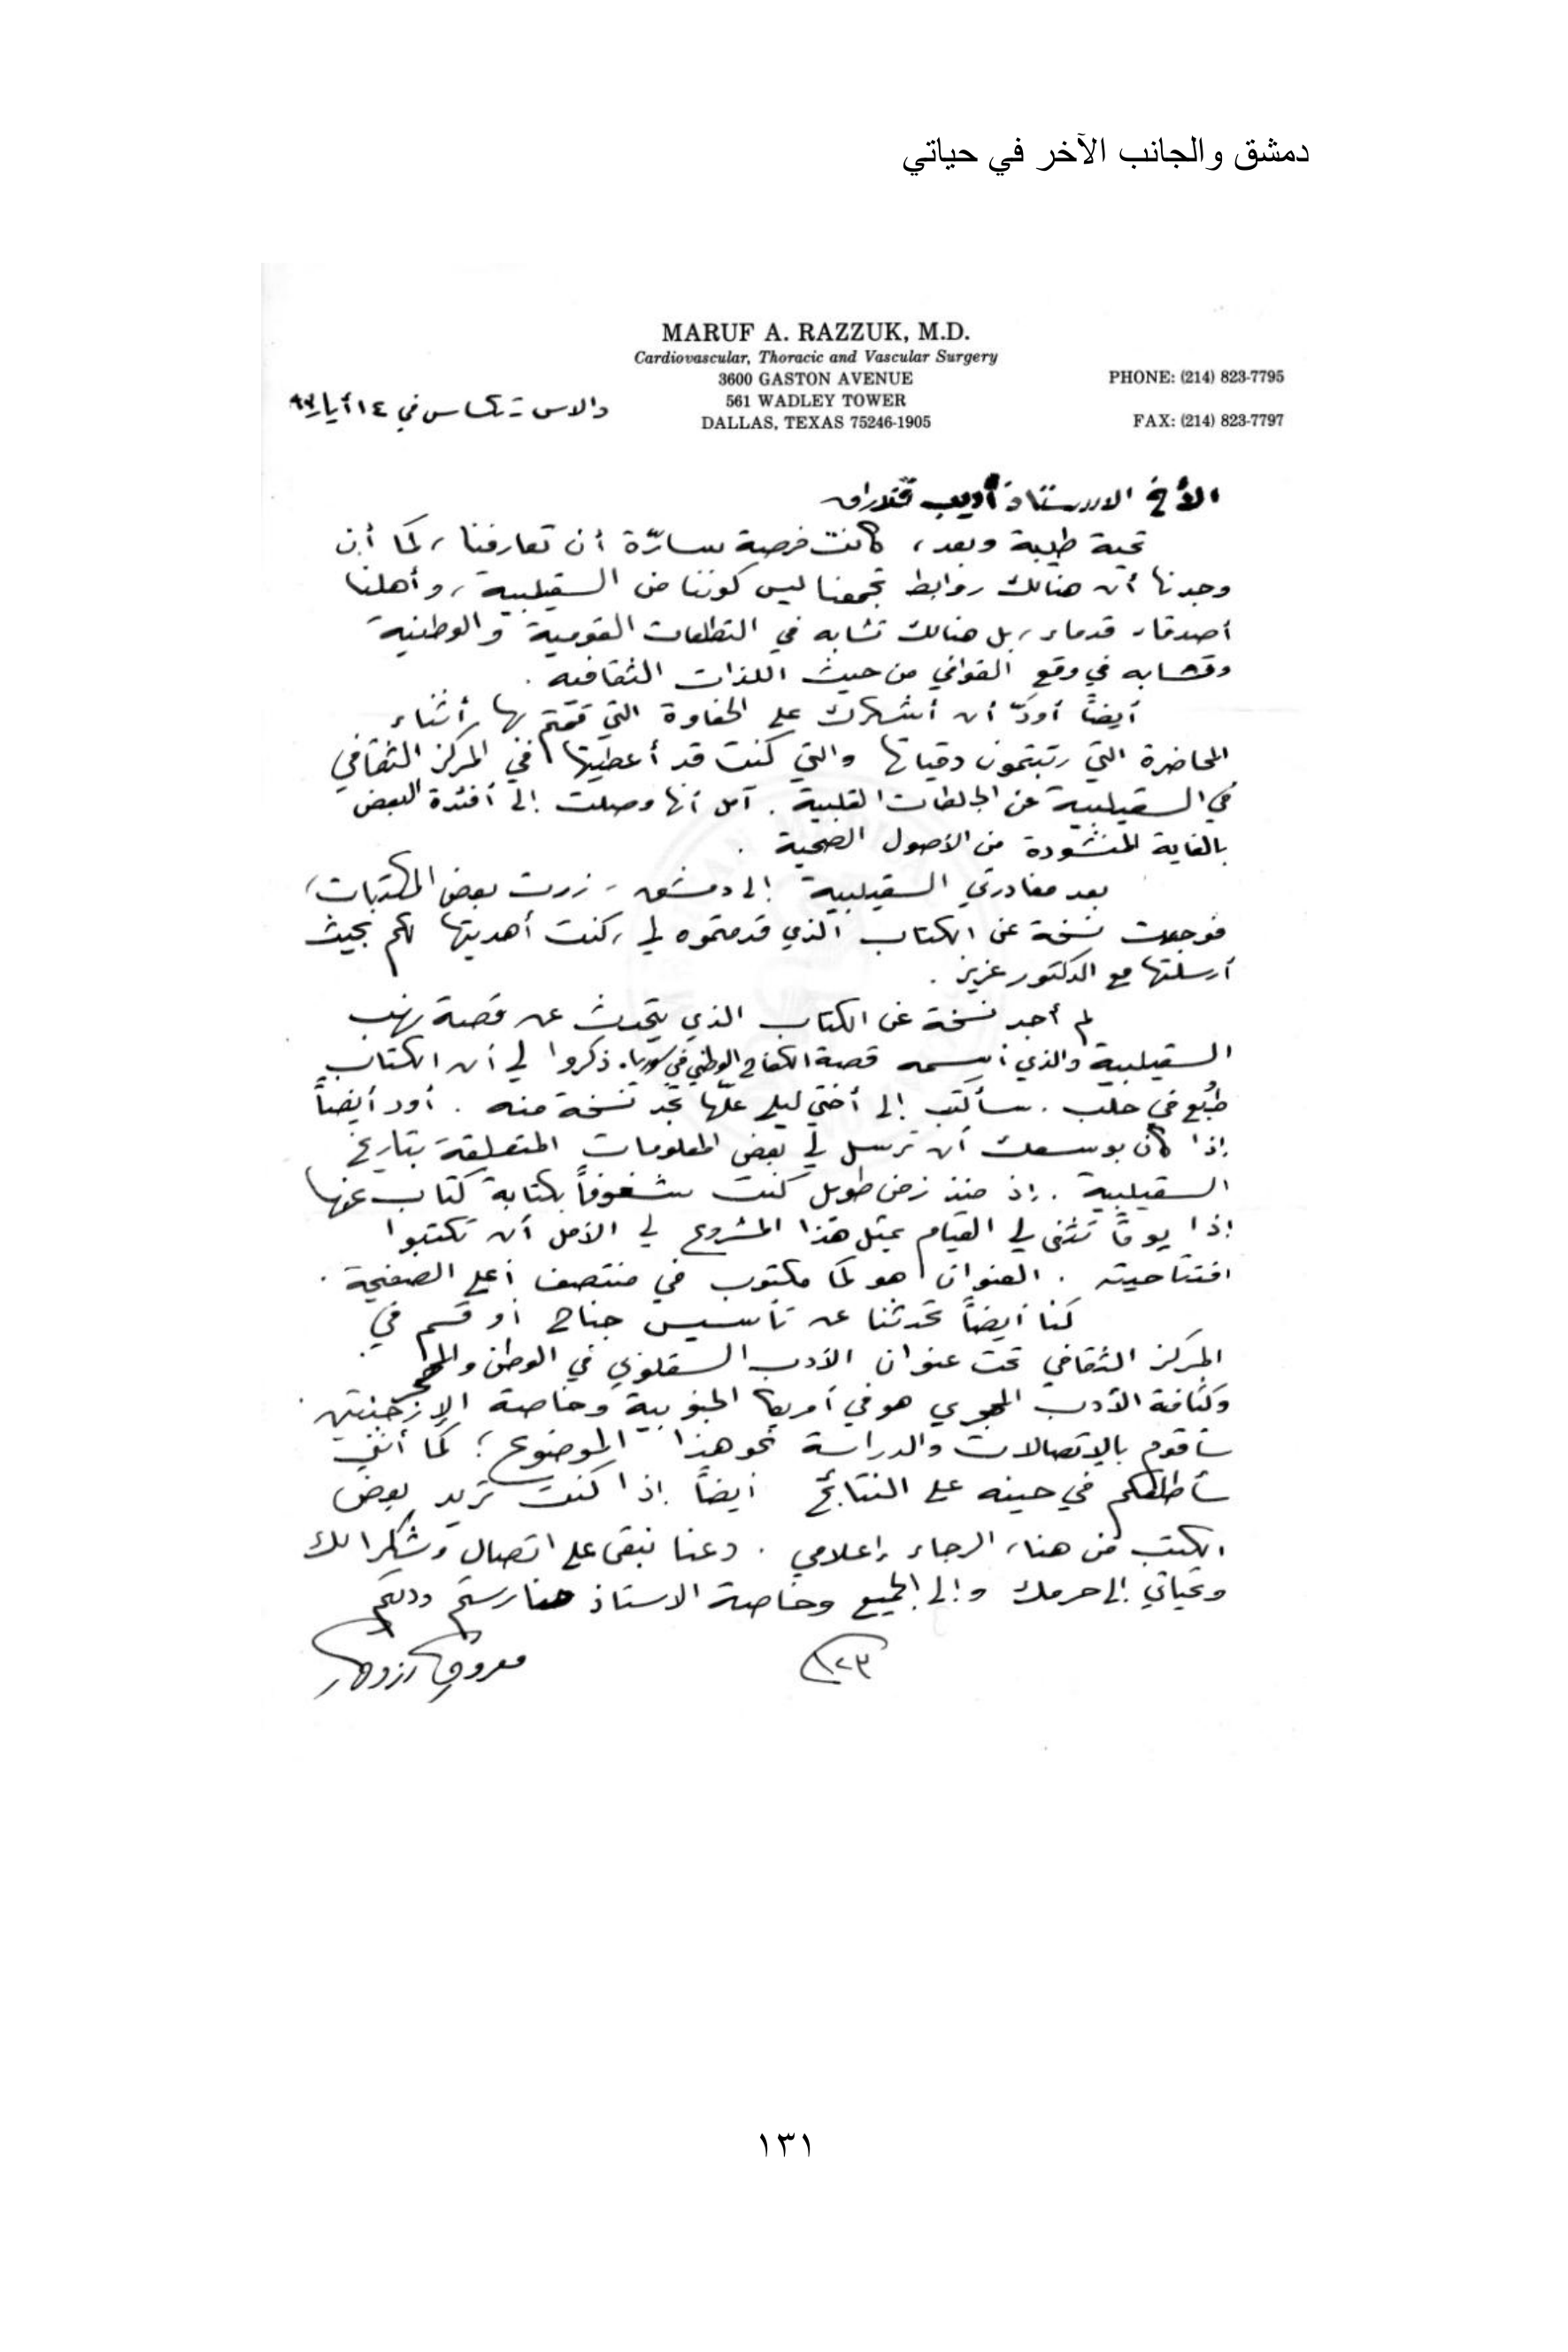 دمشق والجانب الآخر في حياتي
MARUF A. RAZZUK, M.D.
Cardiovascular, Thoracic and Vascular Surgery
3600 GASTON AVENUE
561 WADLEY TOWER
DALLAS, TEXAS 75246-1905
PHONE: (214) 823-7795
FAX: (214) 823-7797
دالاس - تكساس في ١٤ أيار
الأخ الاستاذ أديب قندراق
تحية طيبة وبعد، كانت فرصة سارّة أن تعارفنا، كما أن
وجدنا أن هنالك روابط تجمعنا ليس كوننا من السقيلبية، وأهلنا
أصدقاء قدماء، بل هنالك تشابه في التطلعات القومية والوطنية
وتشابه في وقع القوافي من حيث اللذات الثقافية.
أيضاً أودّ أن أشكرك على الحفاوة التي قمتم بها أثناء
المحاضرة التي رتبتمون دقياتها والتي كنت قد أعطيتها في المركز الثقافي
في السقيلبية عن الجالطات القلبية. آمل أنها وصلت إلى أفئدة البعض
بالغاية المنشودة من الأصول الصحية.
بعد مغادرتي السقيلبية إلى دمشق، زرت بعض المكتبات،
فوجدت نسخة عن الكتاب الذي قدمتموه لي، كنت أهديتها لكم بحيث
أرسلتها مع الدكتور عزيز.
لم أجد نسخة عن الكتاب الذي يتحدث عن قصة نهب
السقيلبية والذي اسمه قصة الكفاح الوطني في سوريا. ذكروا لي أن الكتاب
طُبع في حلب. سأكتب إلى أختي ليلى علّها تجد نسخة منه. أود أيضاً
إذا كان بوسعك أن ترسل لي بعض المعلومات المتعلقة بتاريخ
السقيلبية. إذ منذ زمن طويل كنت شغوفاً بكتابة كتاب عنها
إذا يوماً تثنى لي القيام بمثل هذا المشروع لي الأمل أن تكتبوا
افتتاحيته. العنوان هو كما مكتوب في منتصف أعلى الصفحة.
كنا أيضاً تحدثنا عن تأسيس جناح أو قسم في
المركز الثقافي تحت عنوان الأدب السقلوبي في الوطن والمهجر
وكثافة الأدب المهجري هو في أمريكا الجنوبية وخاصة الإرجنتين.
سأقوم بالإتصالات والدراسة نحو هذا الموضوع؛ كما أنني
سأطلعكم في حينه على النتائج أيضاً إذا كنت تريد بعض
الكتب من هنا، الرجاء إعلامي. دعنا نبقى على اتصال وشكراً لك
وتحياتي إلى حرمك وإلى الجميع وخاصة الاستاذ حنا رستم ودلكم
معروف رزوق
١٢٣
١٣١